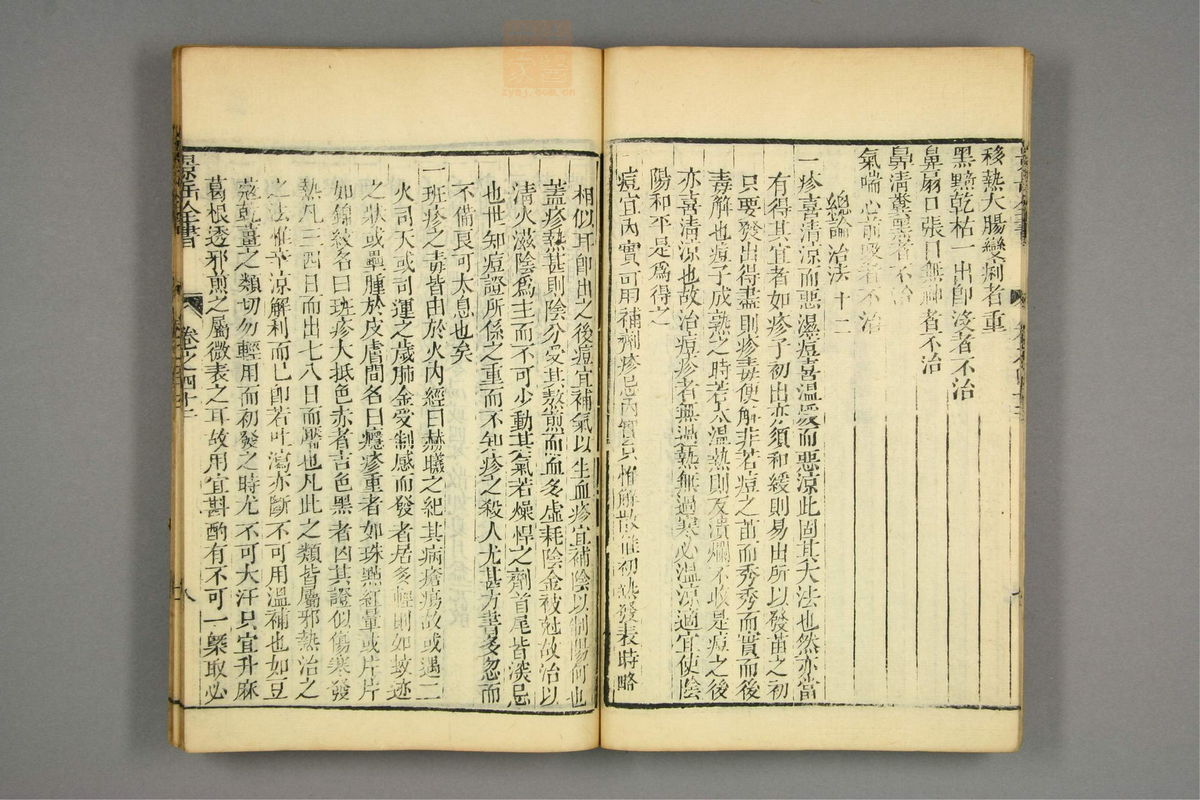 移熱大腸變痢者重
黑黯乾枯一出卽沒者不治
鼻扇口張目無神者不治
鼻清糞黑者不治
氣喘心前吸者不治
總論治法 十二
一疹喜清涼而惡濕痘喜溫煖而惡涼此固其大法也然亦當
有得其宜者如疹子初出亦須和緩則易出所以發苗之初
只要發出得盡則疹毒便解非若痘之苗而秀秀而實而後
毒解也痘子成熟之時若太溫熱則反潰爛不收是痘之後
亦喜清涼也故治痘疹者無過熱無過寒必溫涼適宜使陰
陽和平是爲得之
一痘宜內實可用補劑疹忌內實只惟解散惟初熱發表時略
相似耳卽出之後痘宜補氣以生血疹宜補陰以制陽何也
蓋疹熱甚則陰分受其熬煎而血多虛耗陰金被尅故治以
清火滋陰爲主而不可少動其氣若燥悍之劑首尾皆深忌
也世知痘證所係之重而不知疹之殺人尤甚方書多忽而
不備良可太息也矣
一班疹之毒皆由於火內經曰赫曦之紀其病瘡瘍故或遇二
火司天或司運之歲肺金受制感而發者居多輕則如蚊迹
之狀或壘腫於皮膚間名曰癮疹重者如珠點紅暈或片片
如錦紋名曰班疹大抵色赤者吉色黑者凶其證似傷寒發
熱凡三四日而出七八日而靨也凡此之類皆屬邪熱治之
之法惟辛涼解利而已卽若吐瀉亦斷不可用溫補也如豆
蔻乾薑之類切勿輕用而初發之時尤不可大汗只宜升麻
葛根透邪煎之屬微表之耳故用宜斟酌有不可一槩取必
景岳全書
卷之四十三